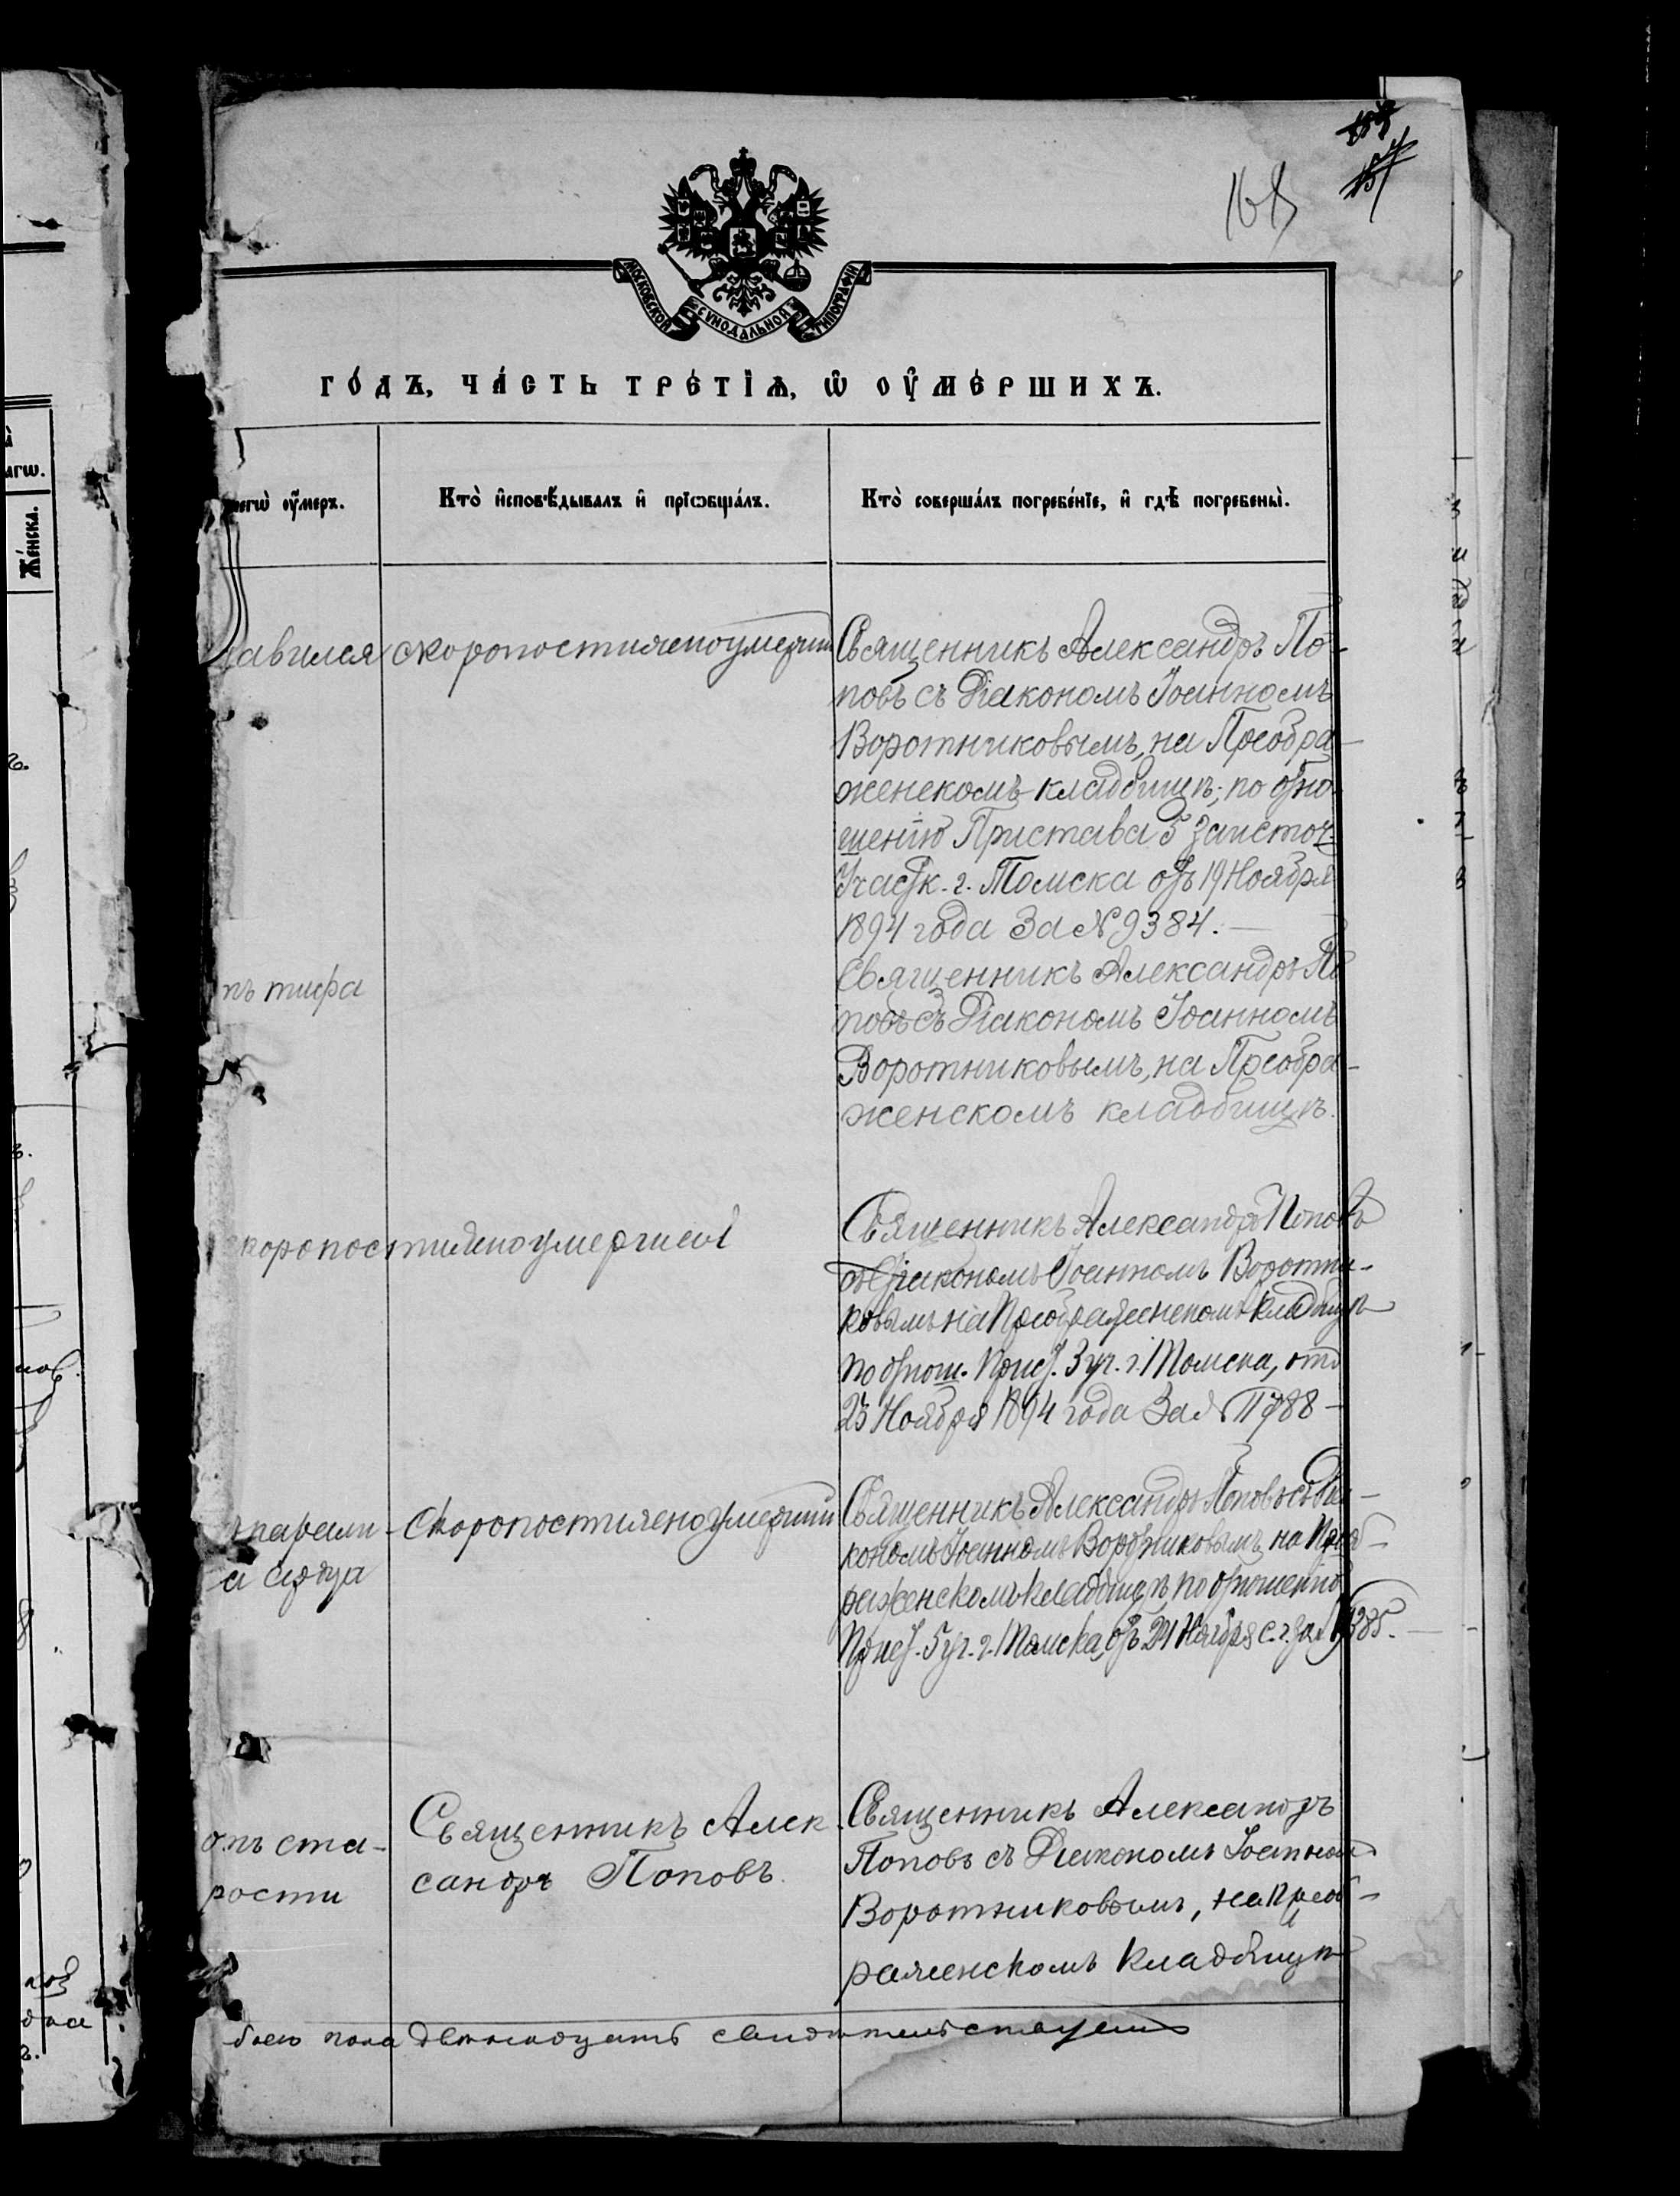 168
МОСКОВСКОЙ СѴНОДАЛЬНОЙ ТИПОГРАФІИ
ГО́ДЪ, ЧА́СТЬ ТРЕ́ТІѦ, Ѡ҆ ОУ҆МЕ́РШИХЪ.
Же́нска.
чегѡ̀ оу҆́меръ.
Кто̀ и҆сповѣ́дывалъ и҆ прїѡбща́лъ.
Кто̀ соверша́лъ погребе́нїе, и҆ гдѣ̀ погребены̀.
давился
скоропостижноумерший
Священникъ Александръ По-
повъ съ Діакономъ Іоанномъ
Воротниковымъ, на Преобра-
женском кладбищѣ; по отно-
шенію Пристава 5 Заисточ.
Участк. г. Томска отъ 19 Ноября
1894 года За № 9384. —
тъ тифа
Священникъ Александръ По
повъ съ Діакономъ Іоанномъ
Воротниковымъ, на Преобра-
женскомъ кладбищѣ.
скоропостижноумершей
Священникъ Александръ Поповъ
съ Діакономъ Іоанномъ Воротни-
ковымъ на Преображенскомъ кладбищѣ
по отнош. Прист. 3 уч. г. Томска, отъ
23 Ноября 1894 года За № 11788 —
ъ парали-
а сердца
Скоропостижноумерший
Священникъ Александръ Поповъ съ Діа-
кономъ Іоанномъ Воротниковымъ, на Преоб-
раженскомъ кладбищѣ, по отношенію
Прист. 5 уч. г. Томска, отъ 24 Ноября с. г. за № 9385.
отъ ста-
рости
Священникъ Алек-
сандръ Поповъ.
Священникъ Александръ
Поповъ съ Діакономъ Іоанномъ
Воротниковымъ, на Преоб-
раженскомъ кладбищѣ
боего пола двѣнадцать свидѣтельствуемъ